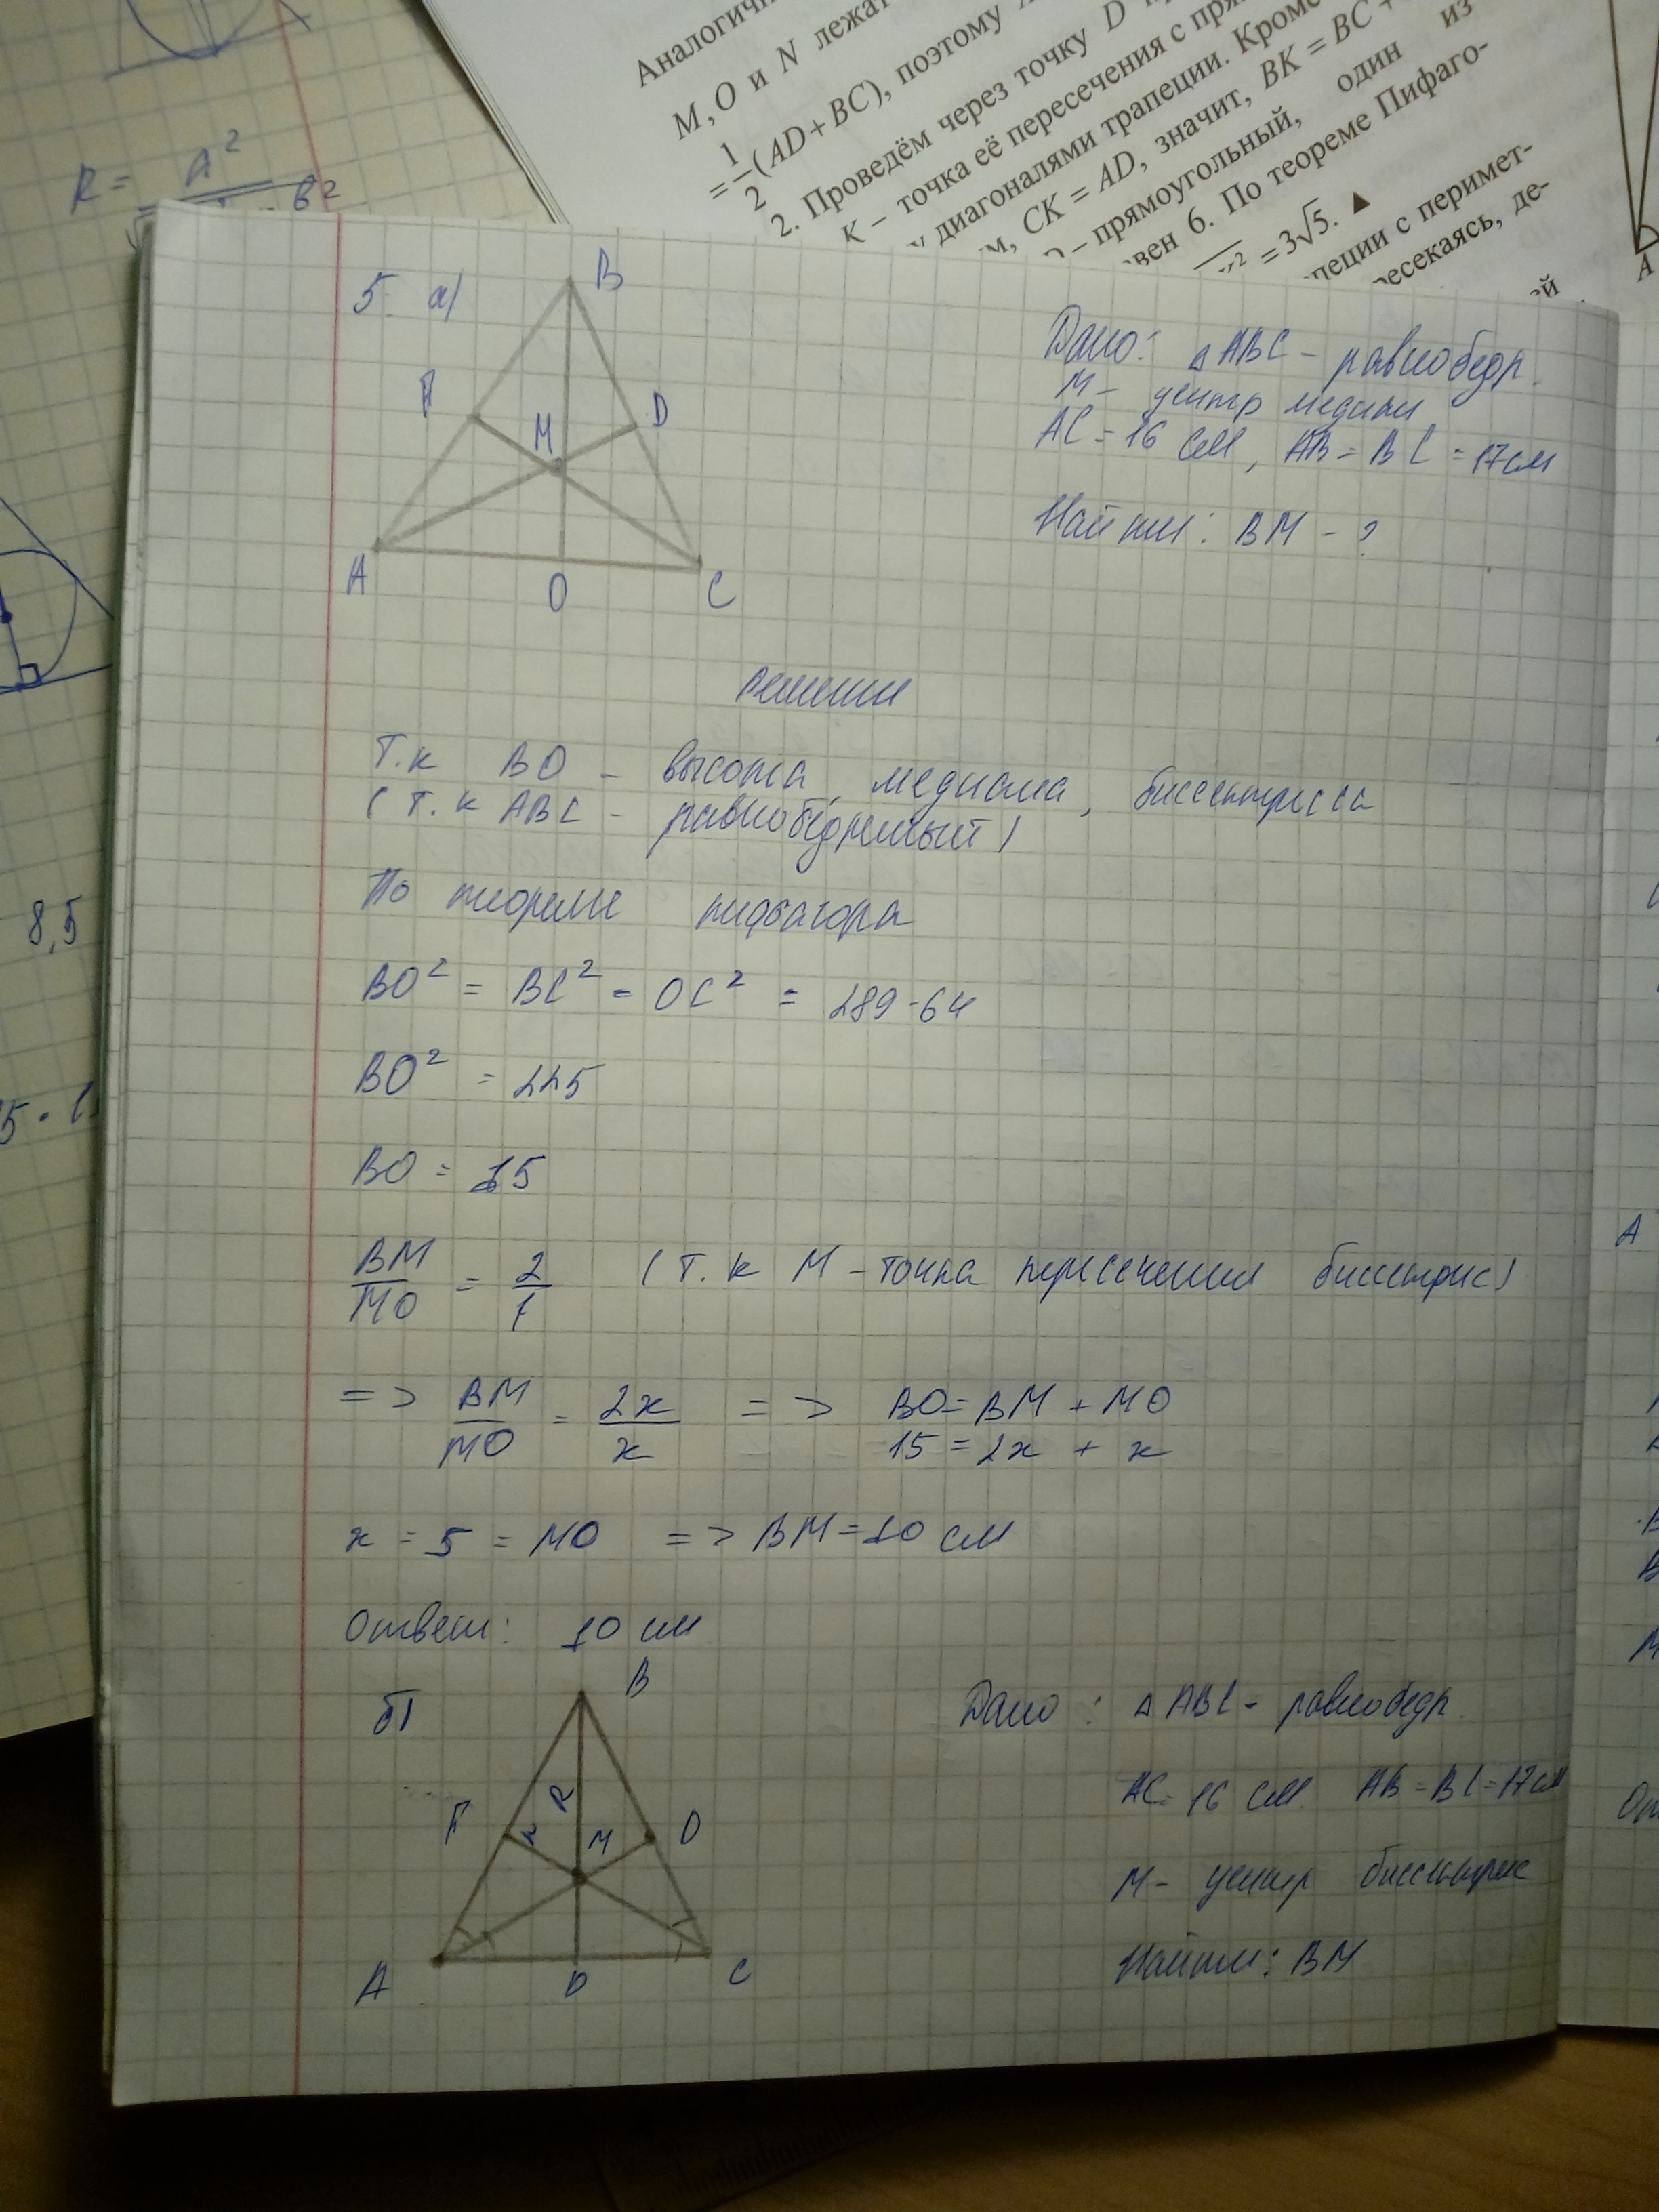 Аналогичн
M, O и N лежат
= 1/2 (AD + BC), поэтому
2. Проведём через точку D
K – точка её пересечения с пря
у диагоналями трапеции. Кроме
м, CK = AD, значит, BK = BC +
– прямоугольный, один из
вен 6. По теореме Пифаго-
= 3√5. ▲
пеции с перимет-
ресекаясь, де-
ей
A
R = A²
- B²
8,5
5. а)
B
F
M
D
A
O
C
Дано: △ABC – равнобедр.
M – центр медиан
AC = 16 см, AB = BC = 17 см
Найти: BM – ?
Решение
Т.к BO – высота, медиана, биссектрисса
(т.к ABC – равнобедренный)
По теореме пифагора
BO² = BC² - OC² = 289 - 64
BO² = 225
BO = 15
BM/MO = 2/1 (т.к M – точка пересечения биссектрис)
=> BM/MO = 2x/x => BO = BM + MO
15 = 2x + x
x = 5 = MO => BM = 10 см
Ответ: 10 см
б)
B
F
R
M
D
A
O
C
Дано: △ABC – равнобедр.
AC = 16 см. AB = BC = 17 см
M – центр биссектрис
Найти: BM
A